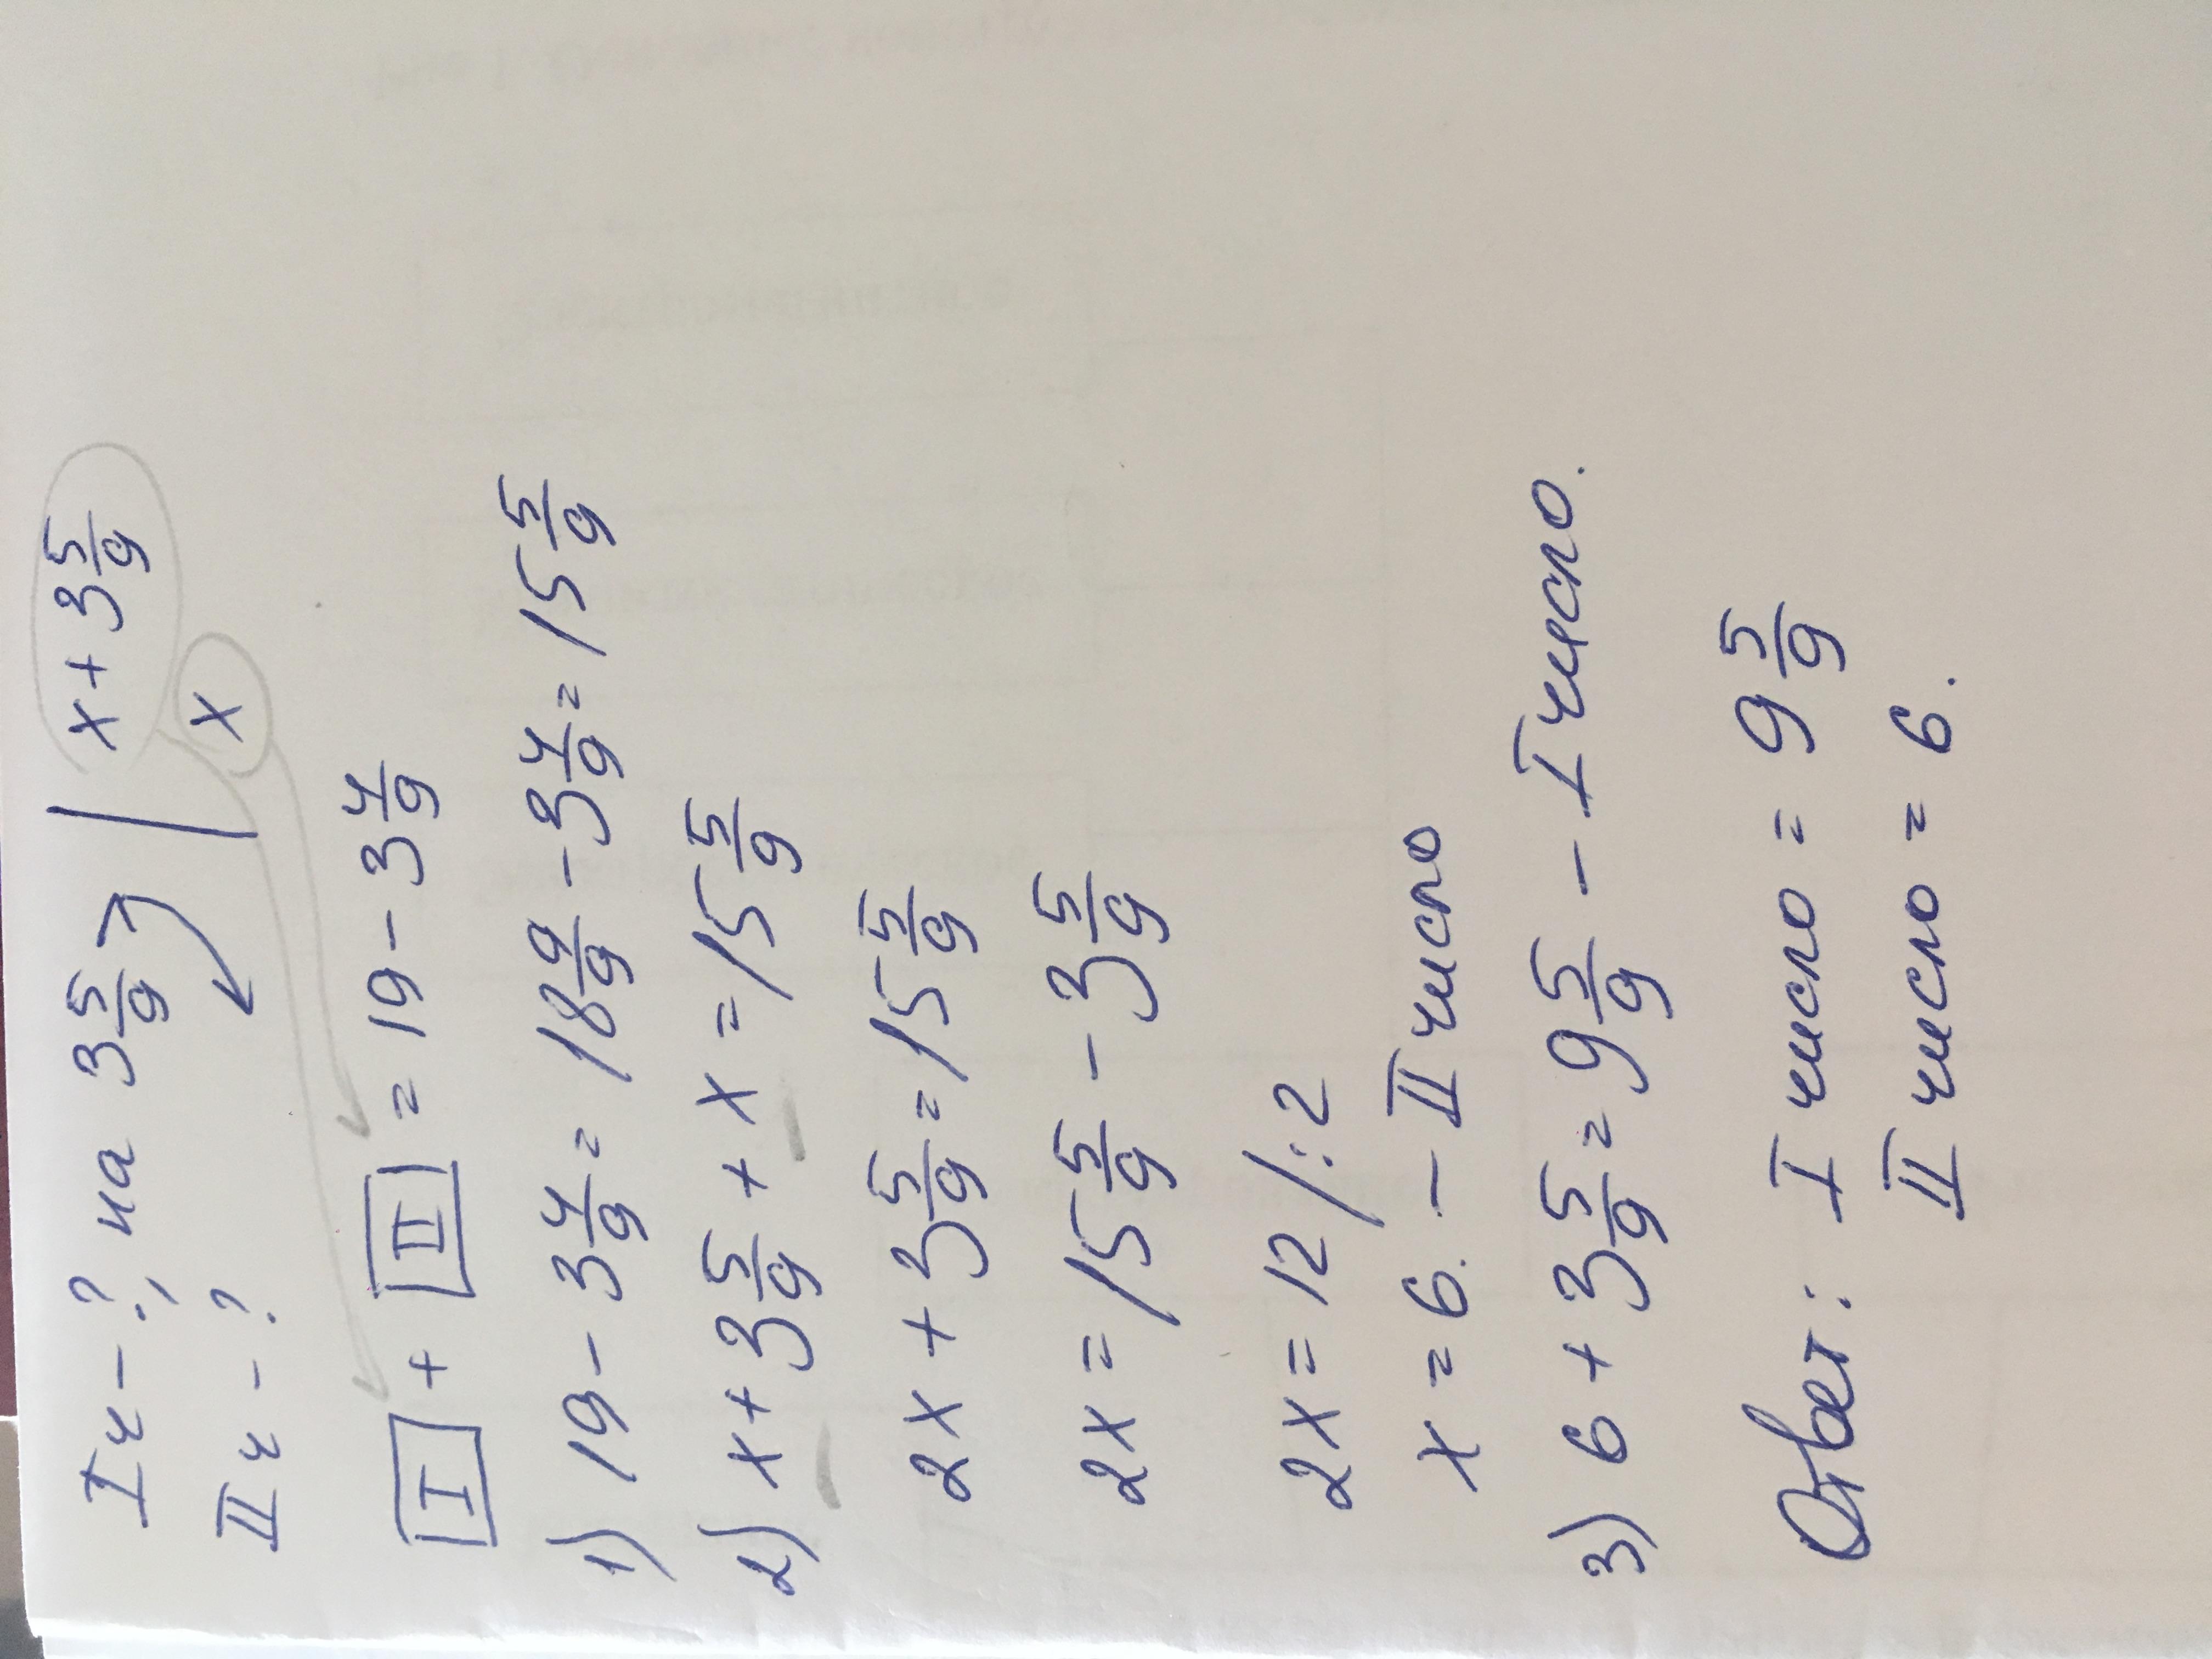 I ч - ?, на 3 5/9 > | x + 3 5/9
II ч - ? x
I + II = 19 - 3 4/9
1) 19 - 3 4/9 = 18 9/9 - 3 4/9 = 15 5/9
2) x + 3 5/9 + x = 15 5/9
2x + 3 5/9 = 15 5/9
2x = 15 5/9 - 3 5/9
2x = 12 /:2
x = 6. - II число
3) 6 + 3 5/9 = 9 5/9 - I число.
Ответ: I число = 9 5/9
II число = 6.